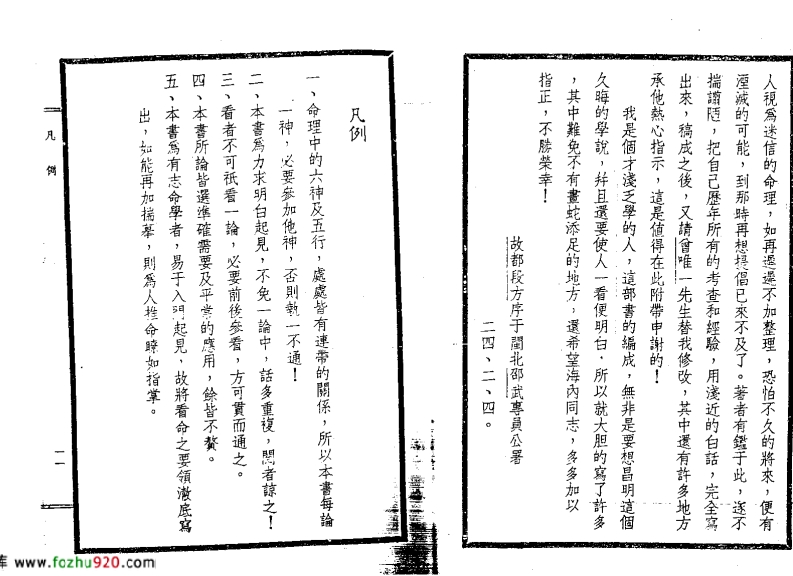 人視為迷信的命理，如再遲遲不加整理，恐怕不久的將來，便有
湮滅的可能，到那時再想提倡已來不及了。著者有鑑于此，遂不
揣譾陋，把自己歷年所有的考查和經驗，用淺近的白話，完全寫
出來，稿成之後，又請曾唯一先生替我修改，其中還有許多地方
承他熱心指示，這是値得在此附帶申謝的！
我是個才淺乏學的人，這部書的編成，無非是要想昌明這個
久晦的學說，幷且還要使人一看便明白，所以就大胆的寫了許多
，其中難免不有畫蛇添足的地方，還希望海內同志，多多加以
指正，不勝榮幸！
故都段方序于閩北邵武專員公署
二四、二、四。
凡例
一、命理中的六神及五行，處處皆有連帶的關係，所以本書每論
一神，必要參加他神，否則執一不通！
二、本書為力求明白起見，不免一論中，話多重複，閱者諒之！
三、看者不可祇看一論，必要前後參看，方可貫而通之。
四、本書所論皆選準確需要及平常的應用，餘皆不贅。
五、本書為有志命學者，易于入門起見，故將看命之要領澈底寫
出，如能再加揣摹，則為人推命瞭如指掌。
凡例
一一
库 www.fozhu920.com